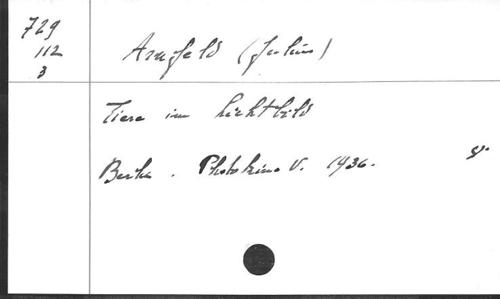 729
112
3
Armfeld (Julius)
Tiere im Lichtbild
Berlin. Photokino V. 1936. 8°